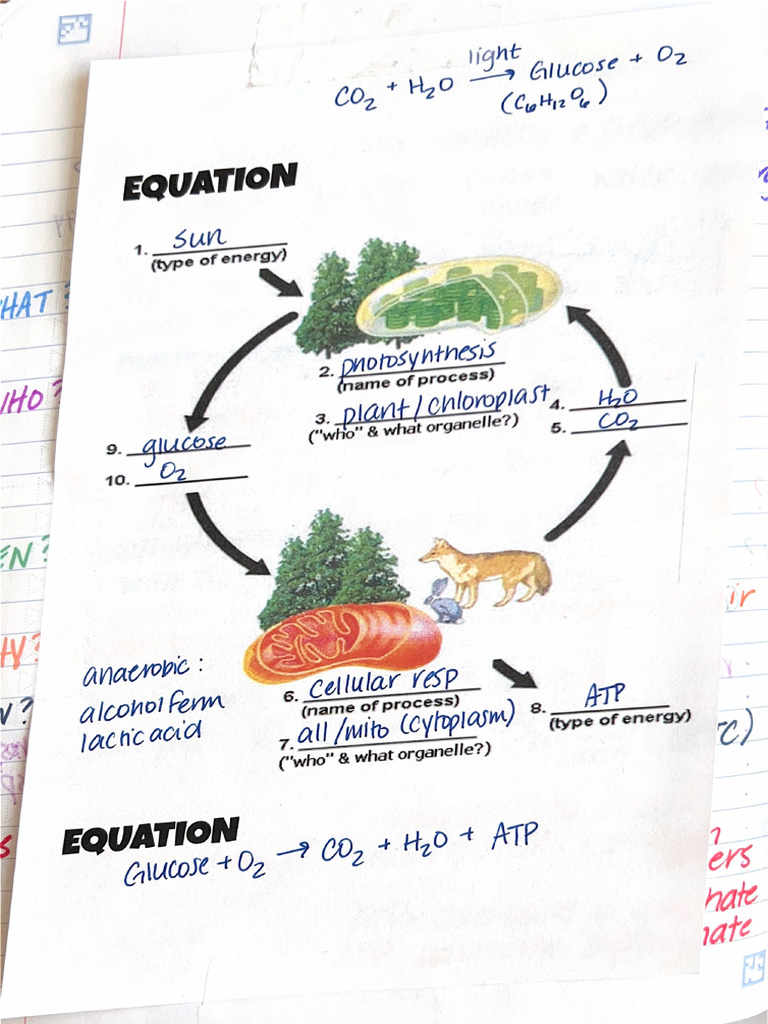 light
CO₂ + H₂O → Glucose + O₂
(C₆H₁₂O₆)
EQUATION
1. sun
(type of energy)
2. photosynthesis
(name of process)
3. plant/chloroplast
("who" & what organelle?)
4. H₂O
5. CO₂
9. glucose
10. O₂
anaerobic:
alcohol ferm
lactic acid
6. cellular resp
(name of process)
7. all/mito (cytoplasm)
("who" & what organelle?)
8. ATP
(type of energy)
EQUATION
Glucose + O₂ → CO₂ + H₂O + ATP
HAT?
WHO?
EN?
HY?
?
ir
TC)
ers
hate
nate